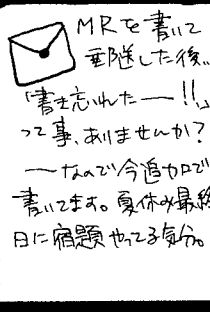 MRを書いて
郵送した後、、
「書き忘れたー!!」
って事、ありませんか?
――なので今追加で
書いてます。夏休み最終
日に宿題やってる気分。